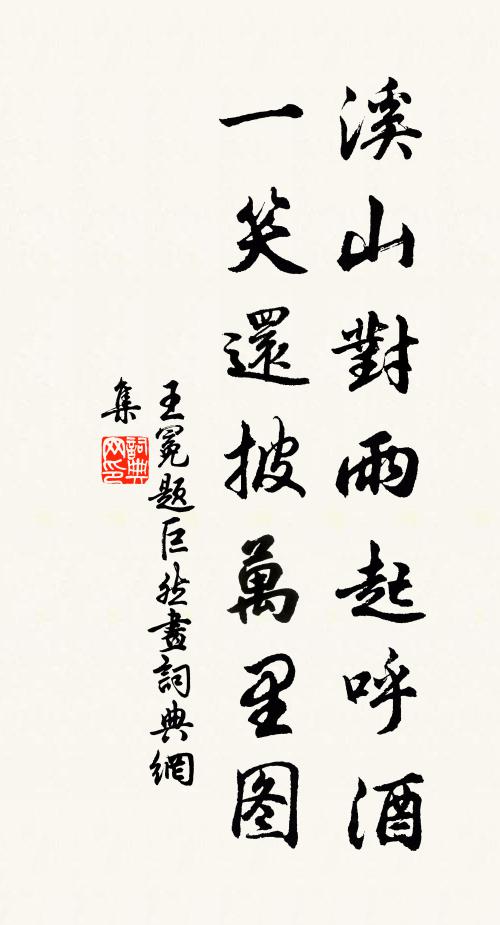 溪山對雨起呼酒
一笑還披萬里图
王冕题巨然畫詞典網
集
詞典
网印